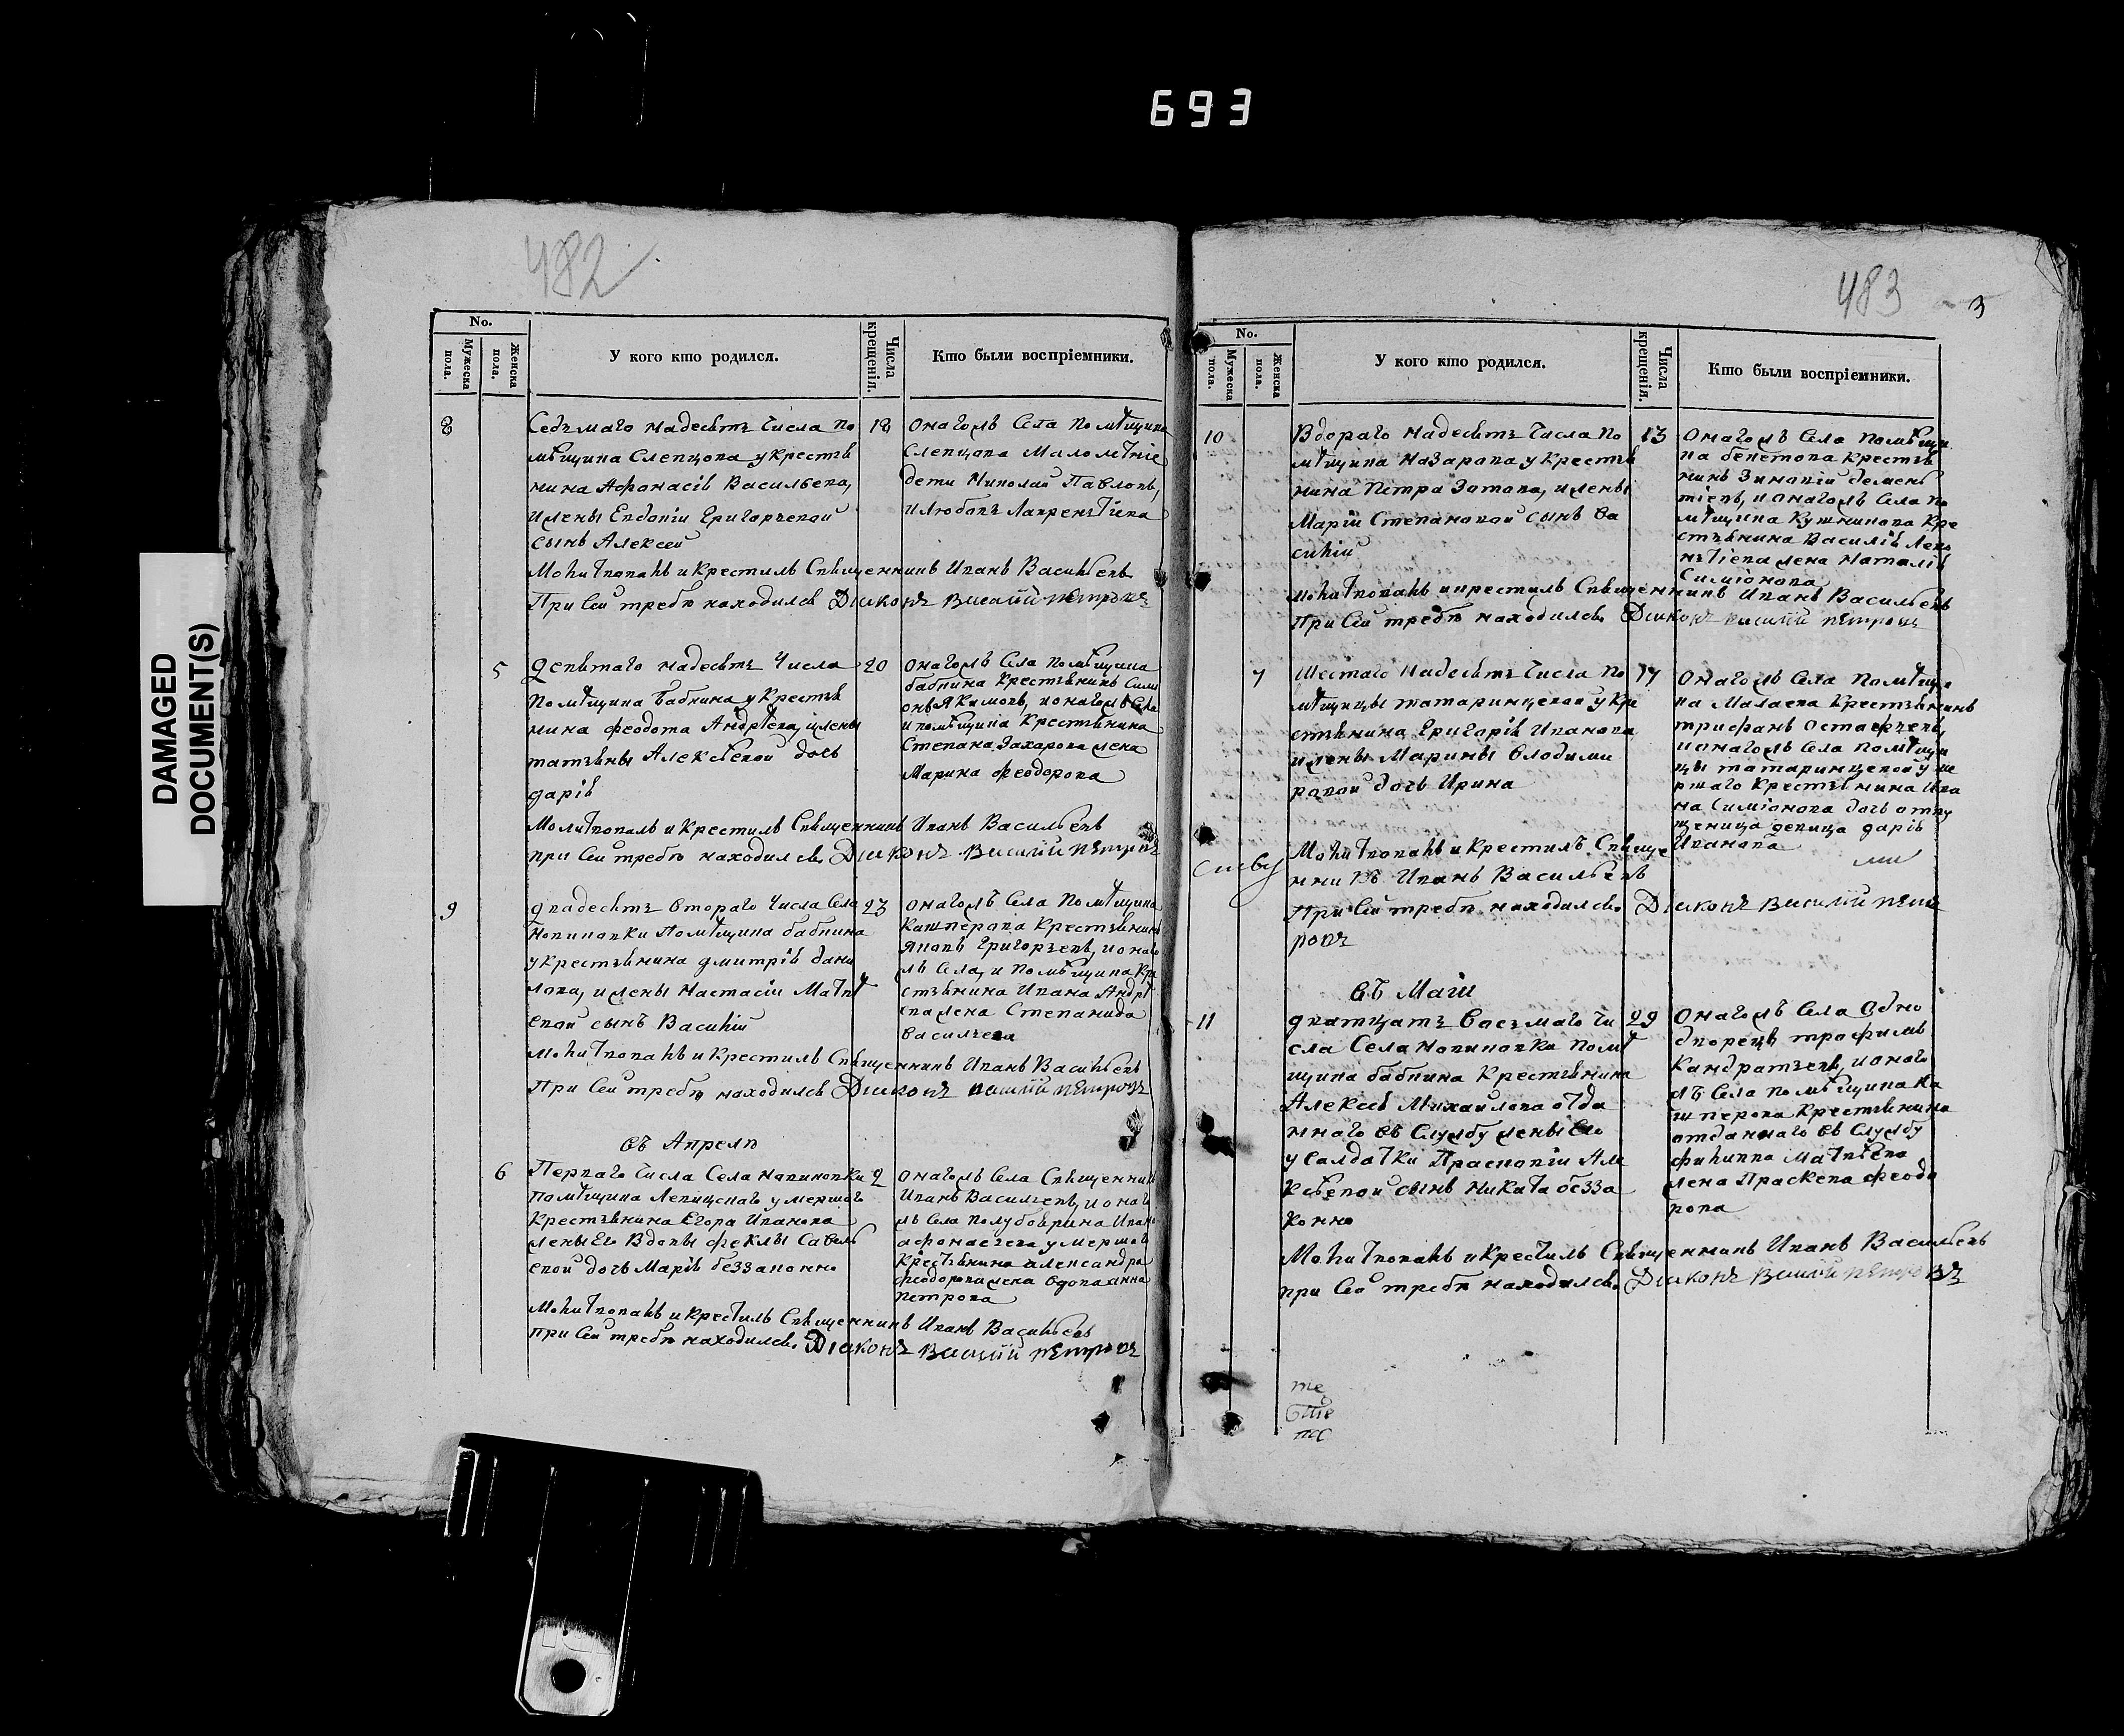 693
DAMAGED
DOCUMENT(S)
482
No.
Мужеска пола.
Женска пола.
У кого кто родился.
Числа крещенія.
Кто были воспріемники.
8
Седьмаго надесять числа по
мѣщика Слепцова у крестья
нина Афонасія Васильева,
и жены Евдокіи Григорьевой
сынъ Алексей
18
онагожъ Села помѣщика
Слепцова Малолѣтніе
дети Николай Павловъ,
и любовь Лаврентіева
Молитвовалъ и крестилъ Священникъ Иванъ Васильевъ
При Сей требѣ находился Діаконъ Василій Петровъ
5
Девятаго надесять Числа
помѣщика Бабкина у крестья
нина Феодота Андрѣева, и жены
татьяны Алексѣевой дочь
дарія
20
онагожъ Села помѣщика
бабкина крестьянинъ Сими
онъ Якимовъ, и онагожъ Села
и помѣщика Крестьянина
Степана Захарова жена
Марина Феодорова
Молитвовалъ и Крестилъ Священникъ Иванъ Васильевъ
при Сей требѣ находился Діаконъ Василій Петровъ
9
двадесять втораго Числа Села
новиновки Помѣщика бабкина
у крестьянина дмитрія дани
лова, и жены Настасіи Матвѣ
евой сынъ Василій
23
онагожъ Села Помѣщика
Кашперова Крестьянинъ
Яковъ Григорьевъ, и онаго
жъ Села, и помѣщика кре
стьянина Ивана Андрѣ
ева жена Степанида
васильева
Молитвовалъ и Крестилъ Священникъ Иванъ Васильевъ
При Сей требѣ находился Діаконъ василій Петровъ
въ Апрелѣ
6
Перваго Числа Села новиновки
помѣщика Левицскаго умершаго
Крестьянина Егора Иванова
жены Его Вдовы феклы Савель
евой дочь Марія беззаконно
2
онагожъ Села Священникъ
Иванъ Васильевъ, и онаго
жъ Села полубоярина Ивана
афонасьева умершаго
Крестьянина александра
феодорова жена вдова анна
петрова
Молитвовалъ и крестилъ Священникъ Иванъ Васильевъ
при Сей требѣ находился Діаконъ Василій Петровъ
483
3
No.
Мужеска пола.
Женска пола.
У кого кто родился.
Числа крещенія.
Кто были воспріемники.
10
Втораго надесять Числа По
мѣщика Назарова у крестья
нина Петра Зотова, и жены
Маріи Степановой сынъ Ва
силій
13
онагожъ Села помѣщи
ка бекетова крестья
нинъ Зиновій демен
тіевъ, и онагожъ Села по
мѣщика Кушникова Кре
стьянина Василія Леон
тіева жена Наталія
Симіонова
молитвовалъ и крестилъ Священникъ Иванъ Васильевъ
При Сей требѣ находился Діаконъ василій Петровъ
7
Шестаго надесять Числа по
мѣщицы татаринцевой у кре
стьянина Григорія Иванова
и жены Марины Влодими
ровой дочь Ирина
17
онагожъ Села помѣщи
ка Малаева Крестьянинъ
трифанъ Остафьевъ,
и онагожъ Села помѣщи
цы татаринцевой уме
ршаго Крестьянина Ива
на Симіонова дочь отпу
щеница девица дарія
Иванова
Молитвовалъ и крестилъ Священ
никъ Иванъ Васильевъ
При Сей требѣ находился Діаконъ Василій Пет
ровъ
въ Маіи
11
дватцать Восьмаго чи
сла Села новиновка помѣ
щика бабкина Крестьянина
Алексея Михайлова отда
ннаго въ Службу жены Его
у Салдатки Прасковіи Але
ксѣевой сынъ Никита безза
конно
29
онагожъ Села Одно
дворецъ трофимъ
Кандратьевъ, и онаго
жъ Села помѣщика ка
шперова крестьянина
отданнаго въ Службу
филиппа Матвѣева
жена Праскева феодо
рова
Молитвовалъ и крестилъ Священникъ Иванъ Васильевъ
при Сей требѣ находился Діаконъ Василій Петровъ